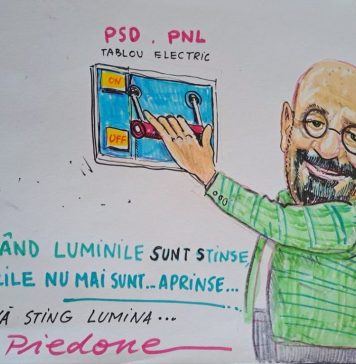 PSD . PNL
TABLOU ELECTRIC
ON
OFF
ÂND LUMINILE SUNT STINSE
ILE NU MAI SUNT...APRINSE...
Ă STING LUMINA...
Piedone